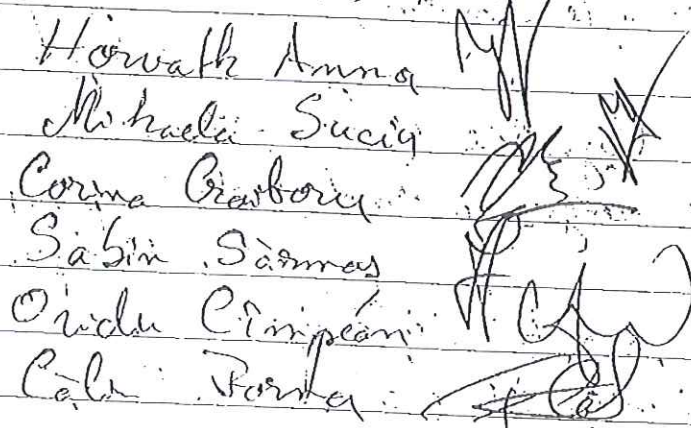 Horvath Anna
Mihaela Suciu
Corina Craiboru
Sabin Sărmaș
Ovidiu Cîmpean
Călin